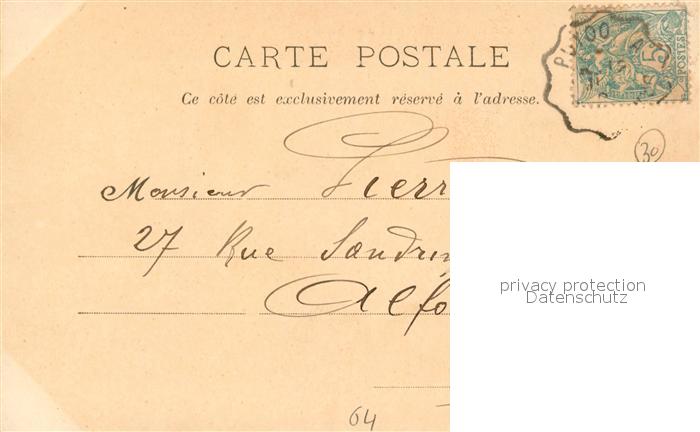 CARTE POSTALE
Ce côté est exclusivement réservé à l'adresse.
5
POSTES
30
Monsieur Pierr
27 Rue Sandrin
Alfo
privacy protection
Datenschutz
64